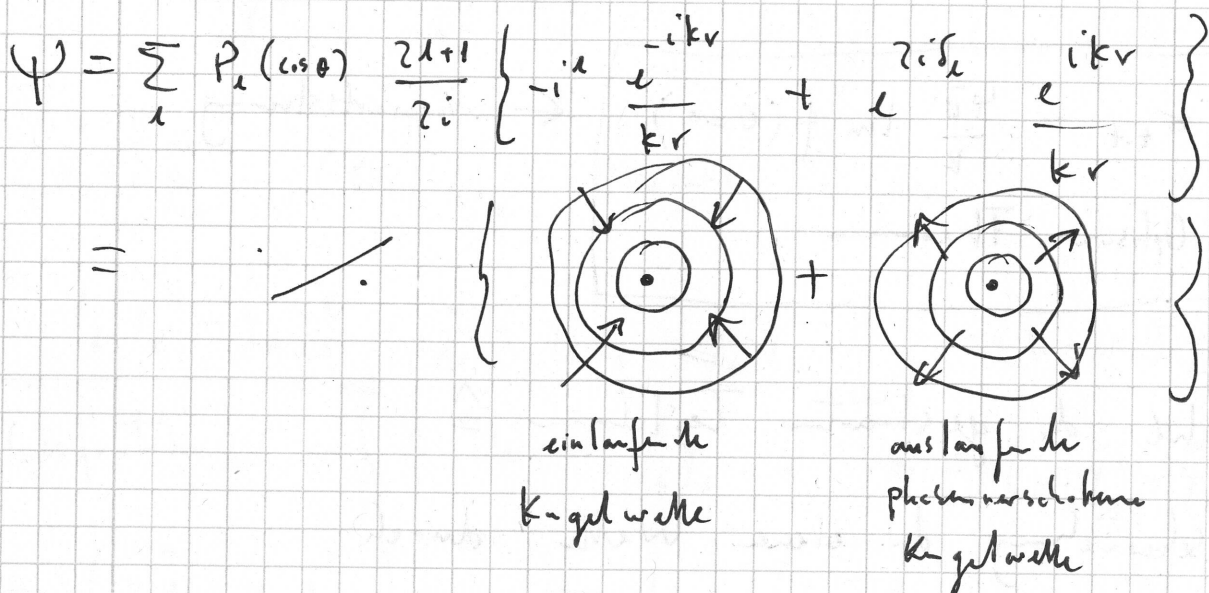 ψ = ∑_l P_l (cos θ) (2l+1)/(2i) { -i^l e^{-ikr}/(kr) + e^{2iδ_l} e^{ikr}/(kr) }
= ·/. { + }
einlaufende auslaufende
Kugelwelle phasenverschobene
Kugelwelle